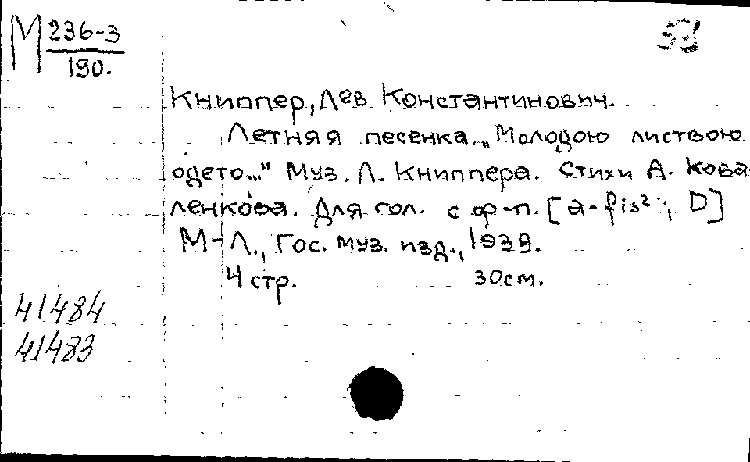 М 236-3
190.
Книппер, Лев Константинович.
Летняя песенка. „Молодою листвою
одето..." Муз. Л. Книппера. Стихи А. Кова
ленкова. Для гол. с ф-п. [a-fis²; D]
М-Л., Гос. муз. изд., 1939.
4 стр. 30 см.
41484
41483